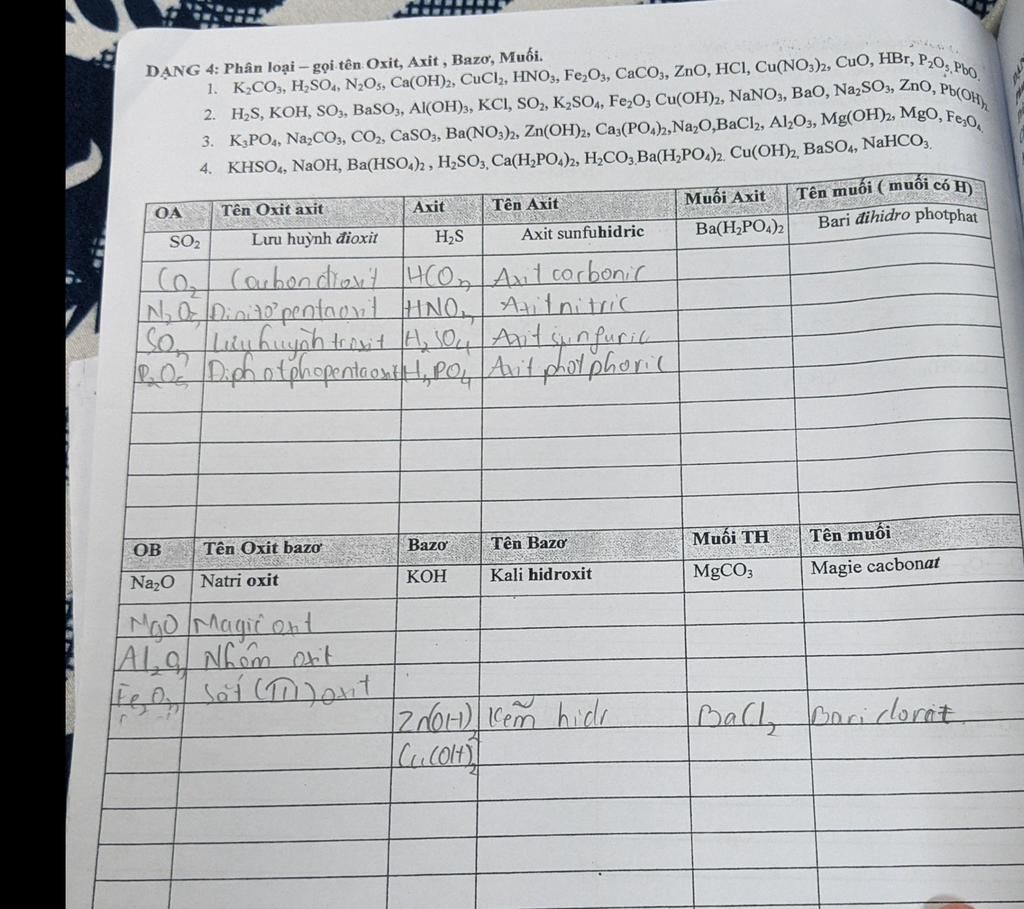 DẠNG 4: Phân loại – gọi tên Oxit, Axit , Bazơ, Muối.
1. K₂CO₃, H₂SO₄, N₂O₅, Ca(OH)₂, CuCl₂, HNO₃, Fe₂O₃, CaCO₃, ZnO, HCl, Cu(NO₃)₂, CuO, HBr, P₂O₅, PbO.
2. H₂S, KOH, SO₃, BaSO₃, Al(OH)₃, KCl, SO₂, K₂SO₄, Fe₂O₃ Cu(OH)₂, NaNO₃, BaO, Na₂SO₃, ZnO, Pb(OH)₂
3. K₃PO₄, Na₂CO₃, CO₂, CaSO₃, Ba(NO₃)₂, Zn(OH)₂, Ca₃(PO₄)₂,Na₂O,BaCl₂, Al₂O₃, Mg(OH)₂, MgO, Fe₃O₄
4. KHSO₄, NaOH, Ba(HSO₄)₂ , H₂SO₃, Ca(H₂PO₄)₂, H₂CO₃,Ba(H₂PO₄)₂. Cu(OH)₂, BaSO₄, NaHCO₃.
OA Tên Oxit axit Axit Tên Axit Muối Axit Tên muối ( muối có H)
SO₂ Lưu huỳnh đioxit H₂S Axit sunfuhidric Ba(H₂PO₄)₂ Bari đihidro photphat
CO₂ Cacbon dioxit HCO₃ Axit cacbonic
N₂O₅ Dinitơ pentaoxit HNO₃ Axit nitric
SO₃ Lưu huỳnh trioxit H₂SO₄ Axit sunfuric
P₂O₅ Diphotphopentaoxit H₃PO₄ Axit photphoric
OB Tên Oxit bazơ Bazơ Tên Bazơ Muối TH Tên muối
Na₂O Natri oxit KOH Kali hidroxit MgCO₃ Magie cacbonat
MgO Magie oxit
Al₂O₃ Nhôm oxit
Fe₂O₃ Sắt (III) oxit
Zn(OH)₂ Kẽm hidr BaCl₂ Bari clorat
Cu(OH)₂